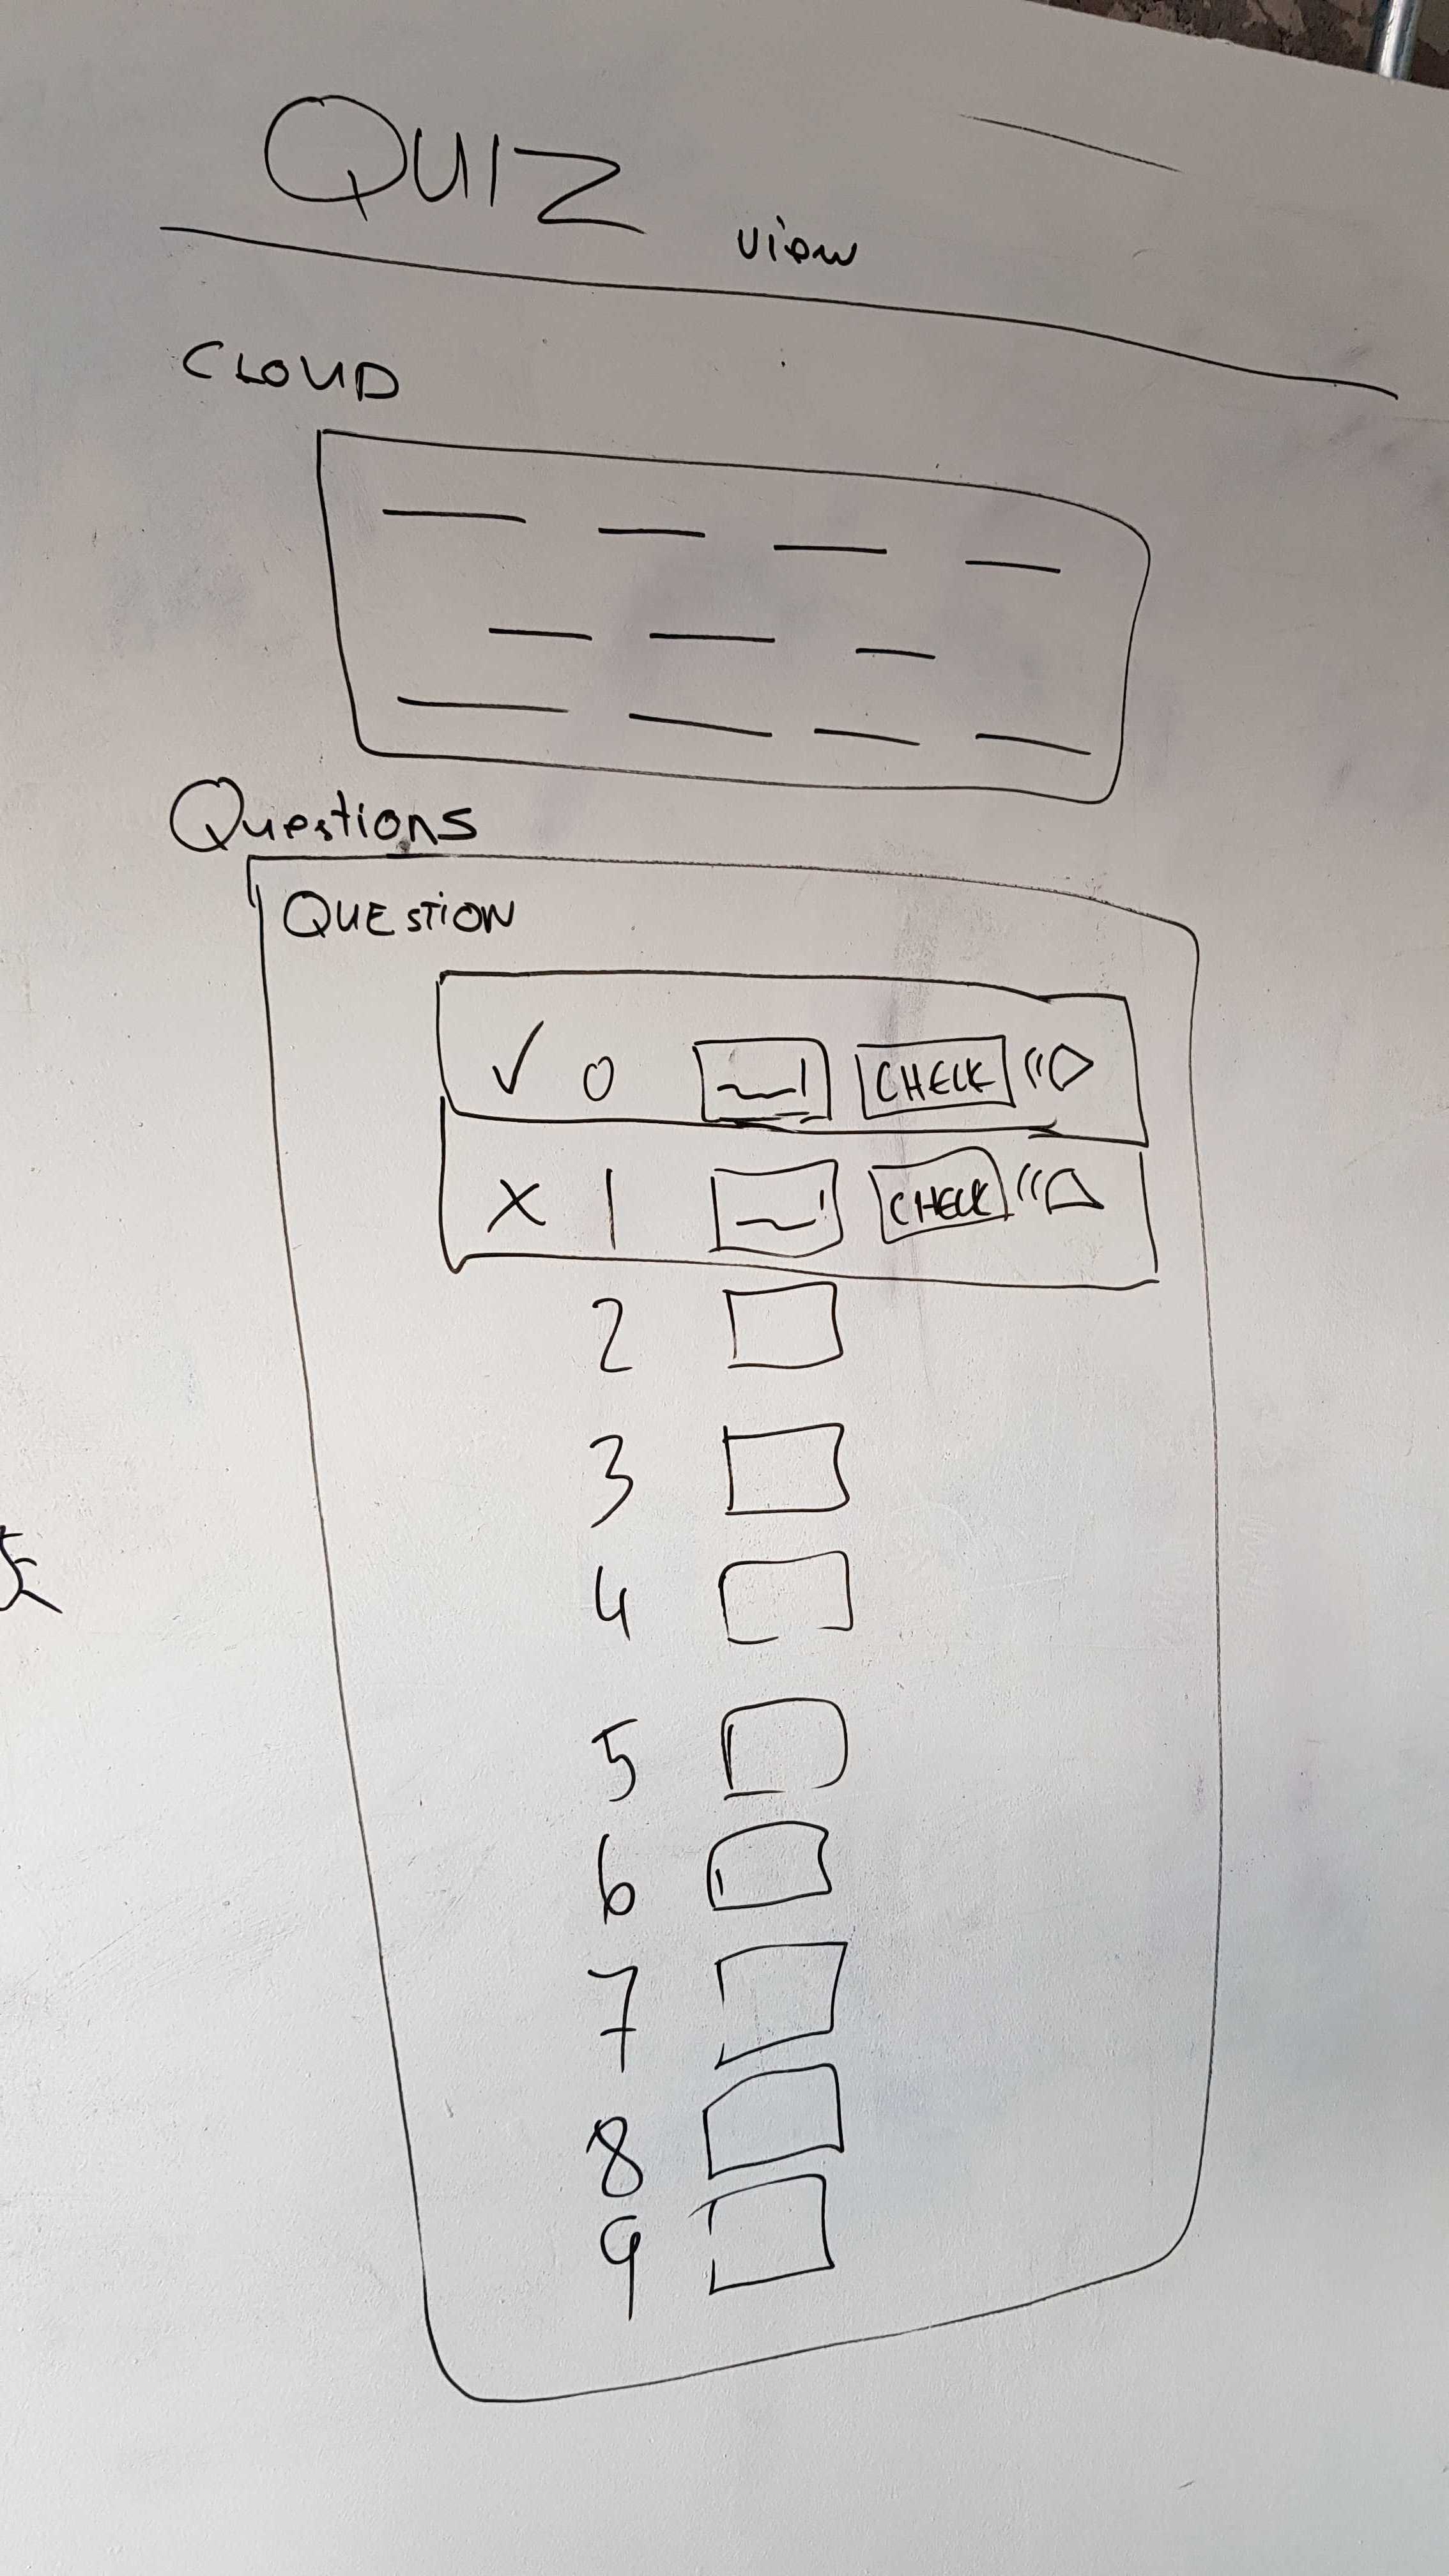 QUIZ view
CLOUD
Questions
QUESTION
✓ 0 CHECK
X 1 CHECK
2
3
4
5
6
7
8
9